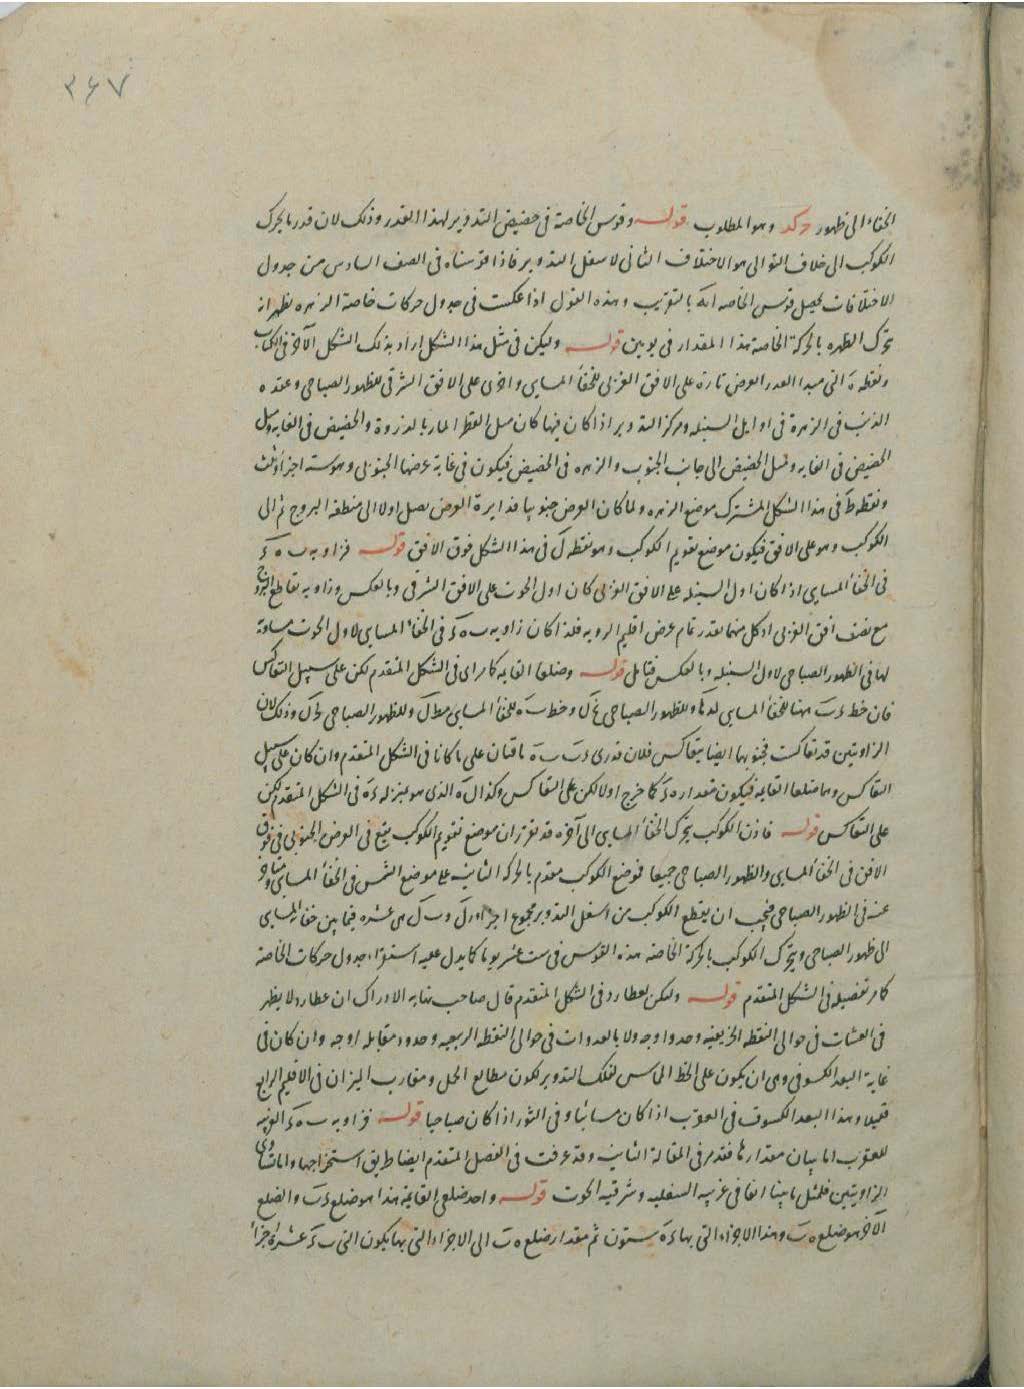 ٣٤٧
الخفاء الى ظهور وكد وهو المطلوب قوله وقوس الخاصة فى حضيض التدوير لهذا القدر وذلك لان قدر ما يتحرك
الكوكب الى خلاف التوالى هو الاختلاف الثانى لاسفل التدوير فاذا قوسناه فى الصف السادس من جدول
الاختلافات يحصل قوس الخاصه بالتقريب وهذه القول اذا عكست فى جدول حركات خاصة الزهره يظهر انه
تحرك الظهره بالحركة الخاصة هذا المقدار فى يومين قوله وليكن فى مثل هذا الشكل اراد بذلك الشكل الآخر فى الكتاب
ونقطة ه التى مبدا العرض تارة على الافق الغربى للخفأ المسايى واخرى على الافق الشرقى للظهور الصباحى وعقده
الذنب فى الزهرة فى اوايل السنبله ومركز التدوير اذا كان فيها كان ميل القطر المار بالذروة والحضيض فى الغايه وميل
الحضيض فى الغايه وميل الحضيض الى جانب الجنوب والزهره فى الحضيض فيكون فى غاية عرضها الجنوبى وهو ستة اجزاء وثلث
ونقطه ط فى هذا الشكل المشترك موضع الزهره ولما كان العرض جنوبيا فدايرة العرض تصل اولا الى منطقه البروج ثم الى
الكوكب وهو على الافق فيكون موضع تقويم الكوكب وهو نقطه ك فى هذا الشكل فوق الافق قوله فزاويه ب ه ء
فى الخفأ المسايى اذا كان اول السنبله على الافق الغربى كان اول الحوت على الافق الشرقى وبالعكس وزاويه تقاطع البروج
مع نصف افق الغربى اذ كل منهما بقدر تمام عرض اقليم الرويه فلذا كان زاويه ب ه ء فى الخفأ المسايى لاول الحوت مساوية
لها فى الظهور الصباحى لاول السنبله وبالعكس فتامل قوله وضلعا القايمه كما مر اى فى الشكل المتقدم لكن على سبيل التعاكس
فان خط ء ب ههنا للخفأ المسايى وللظهور الصباحى وخط ب ه للخفأ المسايى وللظهور الصباحى وذلك لان
الزاويتين قد تعاكست فجنوبها ايضا يتعاكس فلان قدرى ء ب ب ه باقيان على ما كانا فى الشكل المتقدم وان كان على سبيل
التعاكس وهما ضلعا القايمه فيكون مقدار ه ء كما خرج اولا لكن على التعاكس وكذا ل ه الذى هو بمنزله ء ه فى الشكل المتقدم لكن
على التعاكس قوله فاذن الكوكب يتحرك الخفأ المسايى الى آخره قد تقرر ان موضع تقويم الكوكب يقع فى العرض الجنوبى فى فوق
الافق فى الخفأ المسايى والظهور الصباحى جميعا فوضع الكوكب مقدم بالحركه الثانيه على موضع الشمس فى الخفأ المسايى ومتاخر
عنه فى الظهور الصباحى فيجب ان يقطع الكوكب من اسفل التدوير مجموع اجزاء ل ك و ب ك هى عشره فيما بين خفائه المسايى
الى ظهوره الصباحى ويتحرك الكوكب بالحركة الخاصه هذه القوس فى ست عشر يوما كما يدل عليه استقراء جدول حركات الخاصة
كما مر تفصيله فى الشكل المتقدم قوله وليكن لعطارد فى الشكل المتقدم قال صاحب نهايه الادراك ان عطارد لا يظهر
فى العشيات فى حوالى النقطه الخريفيه وحدود اوجه ولا بالغدوات فى حوالى النقطه الربيعيه وحدود مقابله اوجه وان كان فى
غاية البعد الكسوفى وهى ان يكون على الخط المماس لفلك التدوير لكون مطالع الحمل ومغارب الميزان فى الاقليم الرابع
قليلا وهذا البعد الكسوف فى العقرب اذا كان مسائيا وفى الثور اذا كان صباحيا قوله فزاويه ب ه ء الغربيه
للعقرب اما بيان مقدارها فقد مر فى المقالة الثانيه وقد عرفت فى الفصل المتقدم ايضا طريق استخراجها واما تساوى
الزاويتين فلمثل ما بينا انفا فى غربيه السنبله وشرقيه الحوت قوله واحد ضلعى القايمه هذا هو ضلع ء ب والضلع
الآخر هو ضلع ه ب وهذا الاجزاء التى بها ء ه ستون ثم مقدار ضلع ه ب الى الاجزاء التى بها يكون التى ب ء عشرة اجزأ